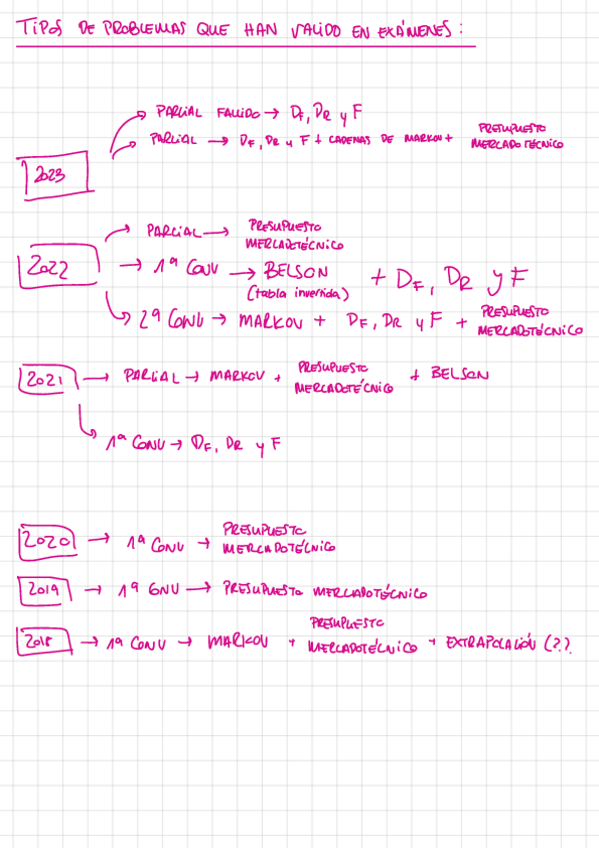 TIPOS DE PROBLEMAS QUE HAN VALIDO EN EXÁMENES:
PARCIAL FALLIDO → DF, DR y F
PARCIAL → DF, DR y F + CADENAS DE MARKOV + PRESUPUESTO MERCADOTÉCNICO
2023
PARCIAL → PRESUPUESTO MERCADOTÉCNICO
2022 → 1ª CONV → BELSON (tabla invertida) + DF, DR y F
2ª CONV → MARKOV + DF, DR y F + PRESUPUESTO MERCADOTÉCNICO
2021 → PARCIAL → MARKOV + PRESUPUESTO MERCADOTÉCNICO + BELSON
1ª CONV → DF, DR y F
2020 → 1ª CONV → PRESUPUESTO MERCADOTÉCNICO
2019 → 1ª CONV → PRESUPUESTO MERCADOTÉCNICO
2018 → 1ª CONV → MARKOV + PRESUPUESTO MERCADOTÉCNICO + EXTRAPOLACIÓN (??